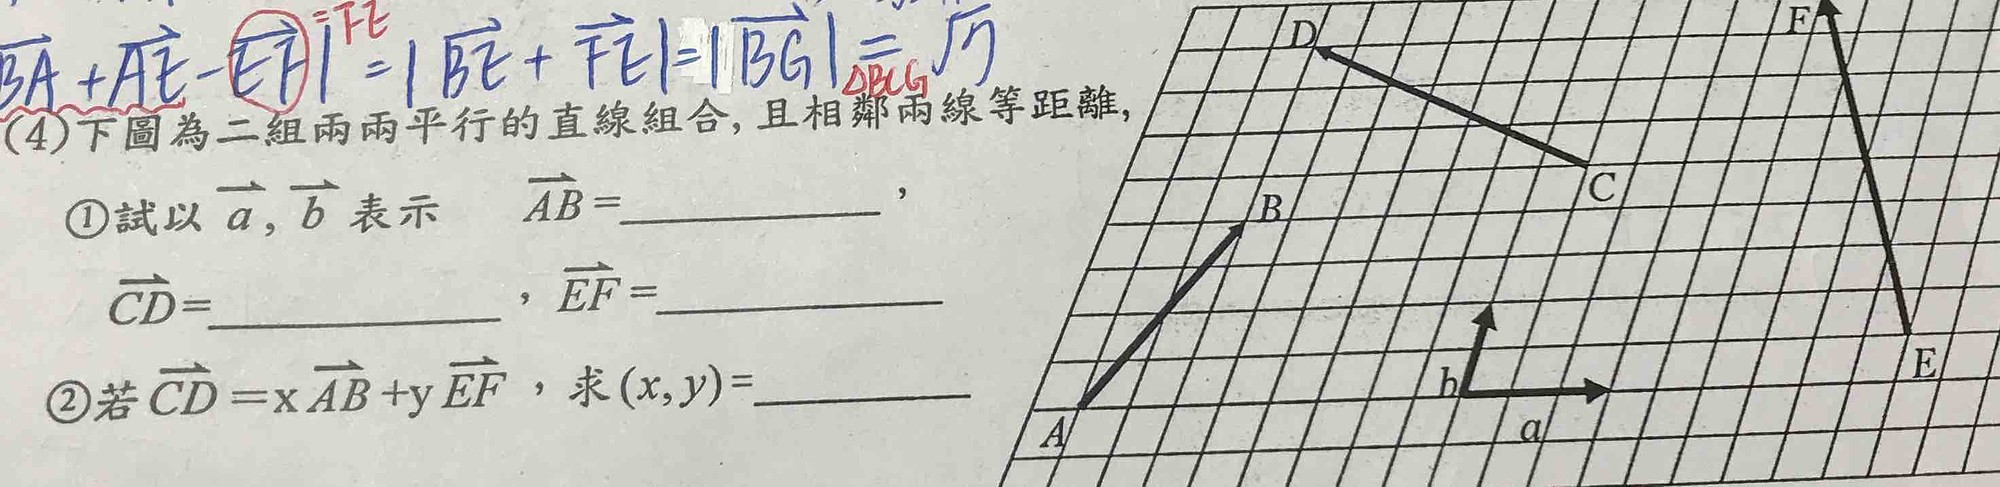 BA + AE - EF| = |BE + FE| = |BG| = √7
=FE
△BCG
(4)下圖為二組兩兩平行的直線組合,且相鄰兩線等距離,
①試以 a, b 表示 AB=＿＿＿＿＿＿,
CD=＿＿＿＿＿＿, EF=＿＿＿＿＿＿
②若 CD=xAB+yEF,求(x,y)=＿＿＿＿＿＿
D
F
C
B
b
E
A
a